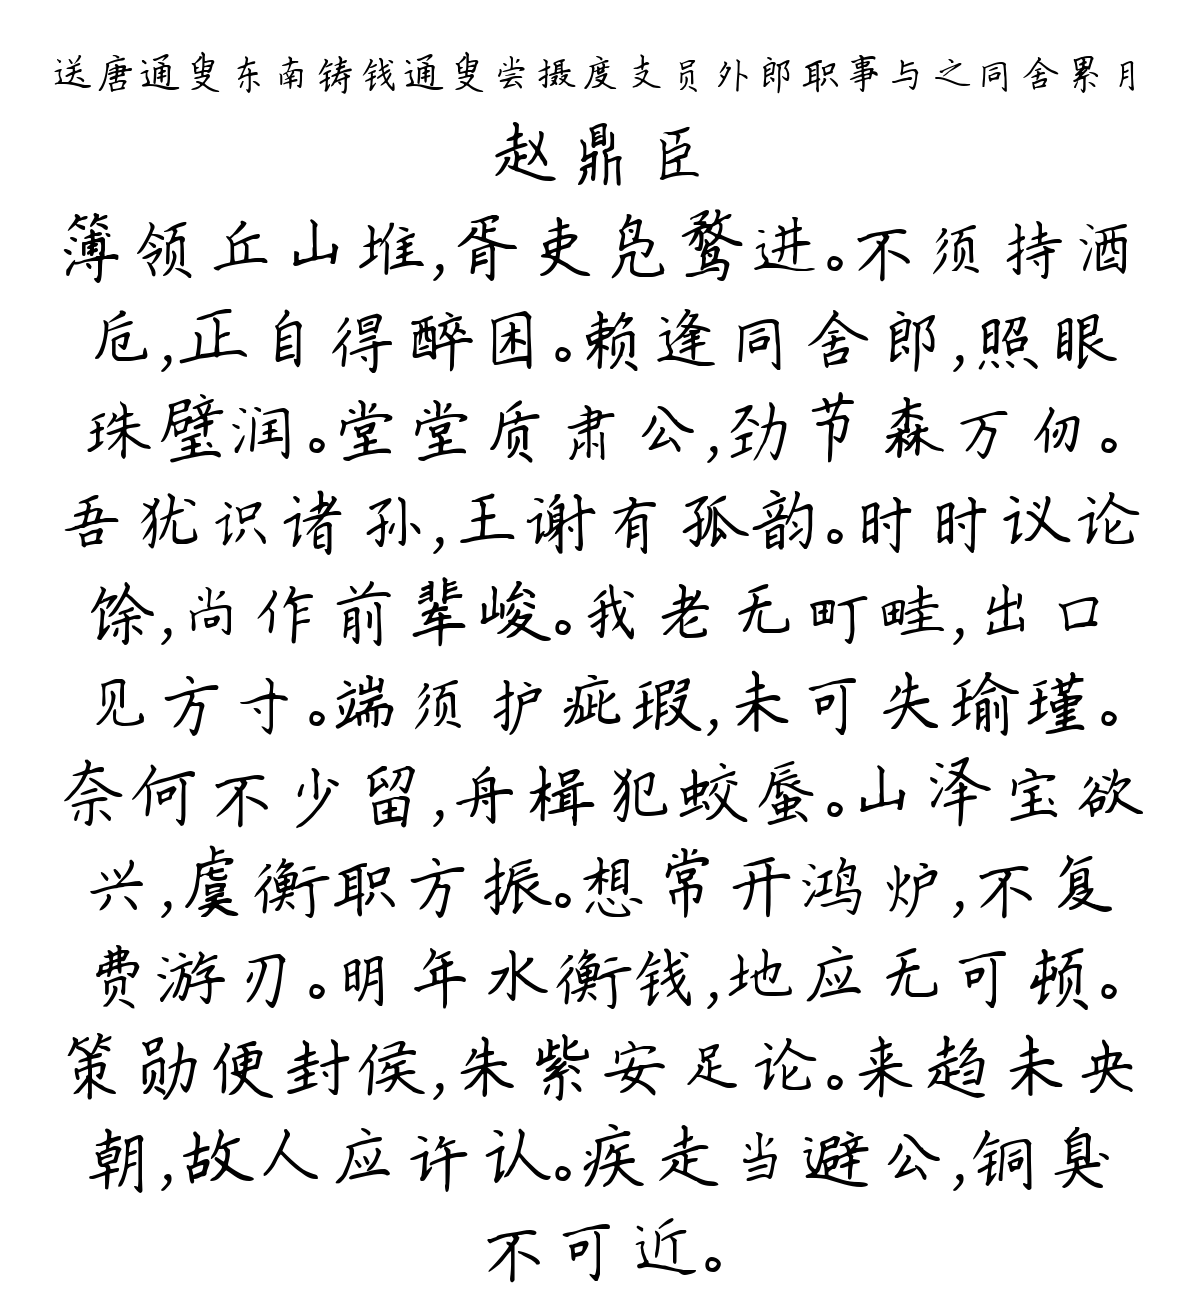 送唐通叟东南铸钱通叟尝摄度支员外郎职事与之同舍累月
赵鼎臣
簿领丘山堆,胥吏凫鹜进。不须持酒
卮,正自得醉困。赖逢同舍郎,照眼
珠璧润。堂堂质肃公,劲节森万仞。
吾犹识诸孙,王谢有孤韵。时时议论
馀,尚作前辈峻。我老无町畦,出口
见方寸。端须护疵瑕,未可失瑜瑾。
奈何不少留,舟楫犯蛟蜃。山泽宝欲
兴,虞衡职方振。想常开鸿炉,不复
费游刃。明年水衡钱,地应无可顿。
策勋便封侯,朱紫安足论。来趋未央
朝,故人应许认。疾走当避公,铜臭
不可近。